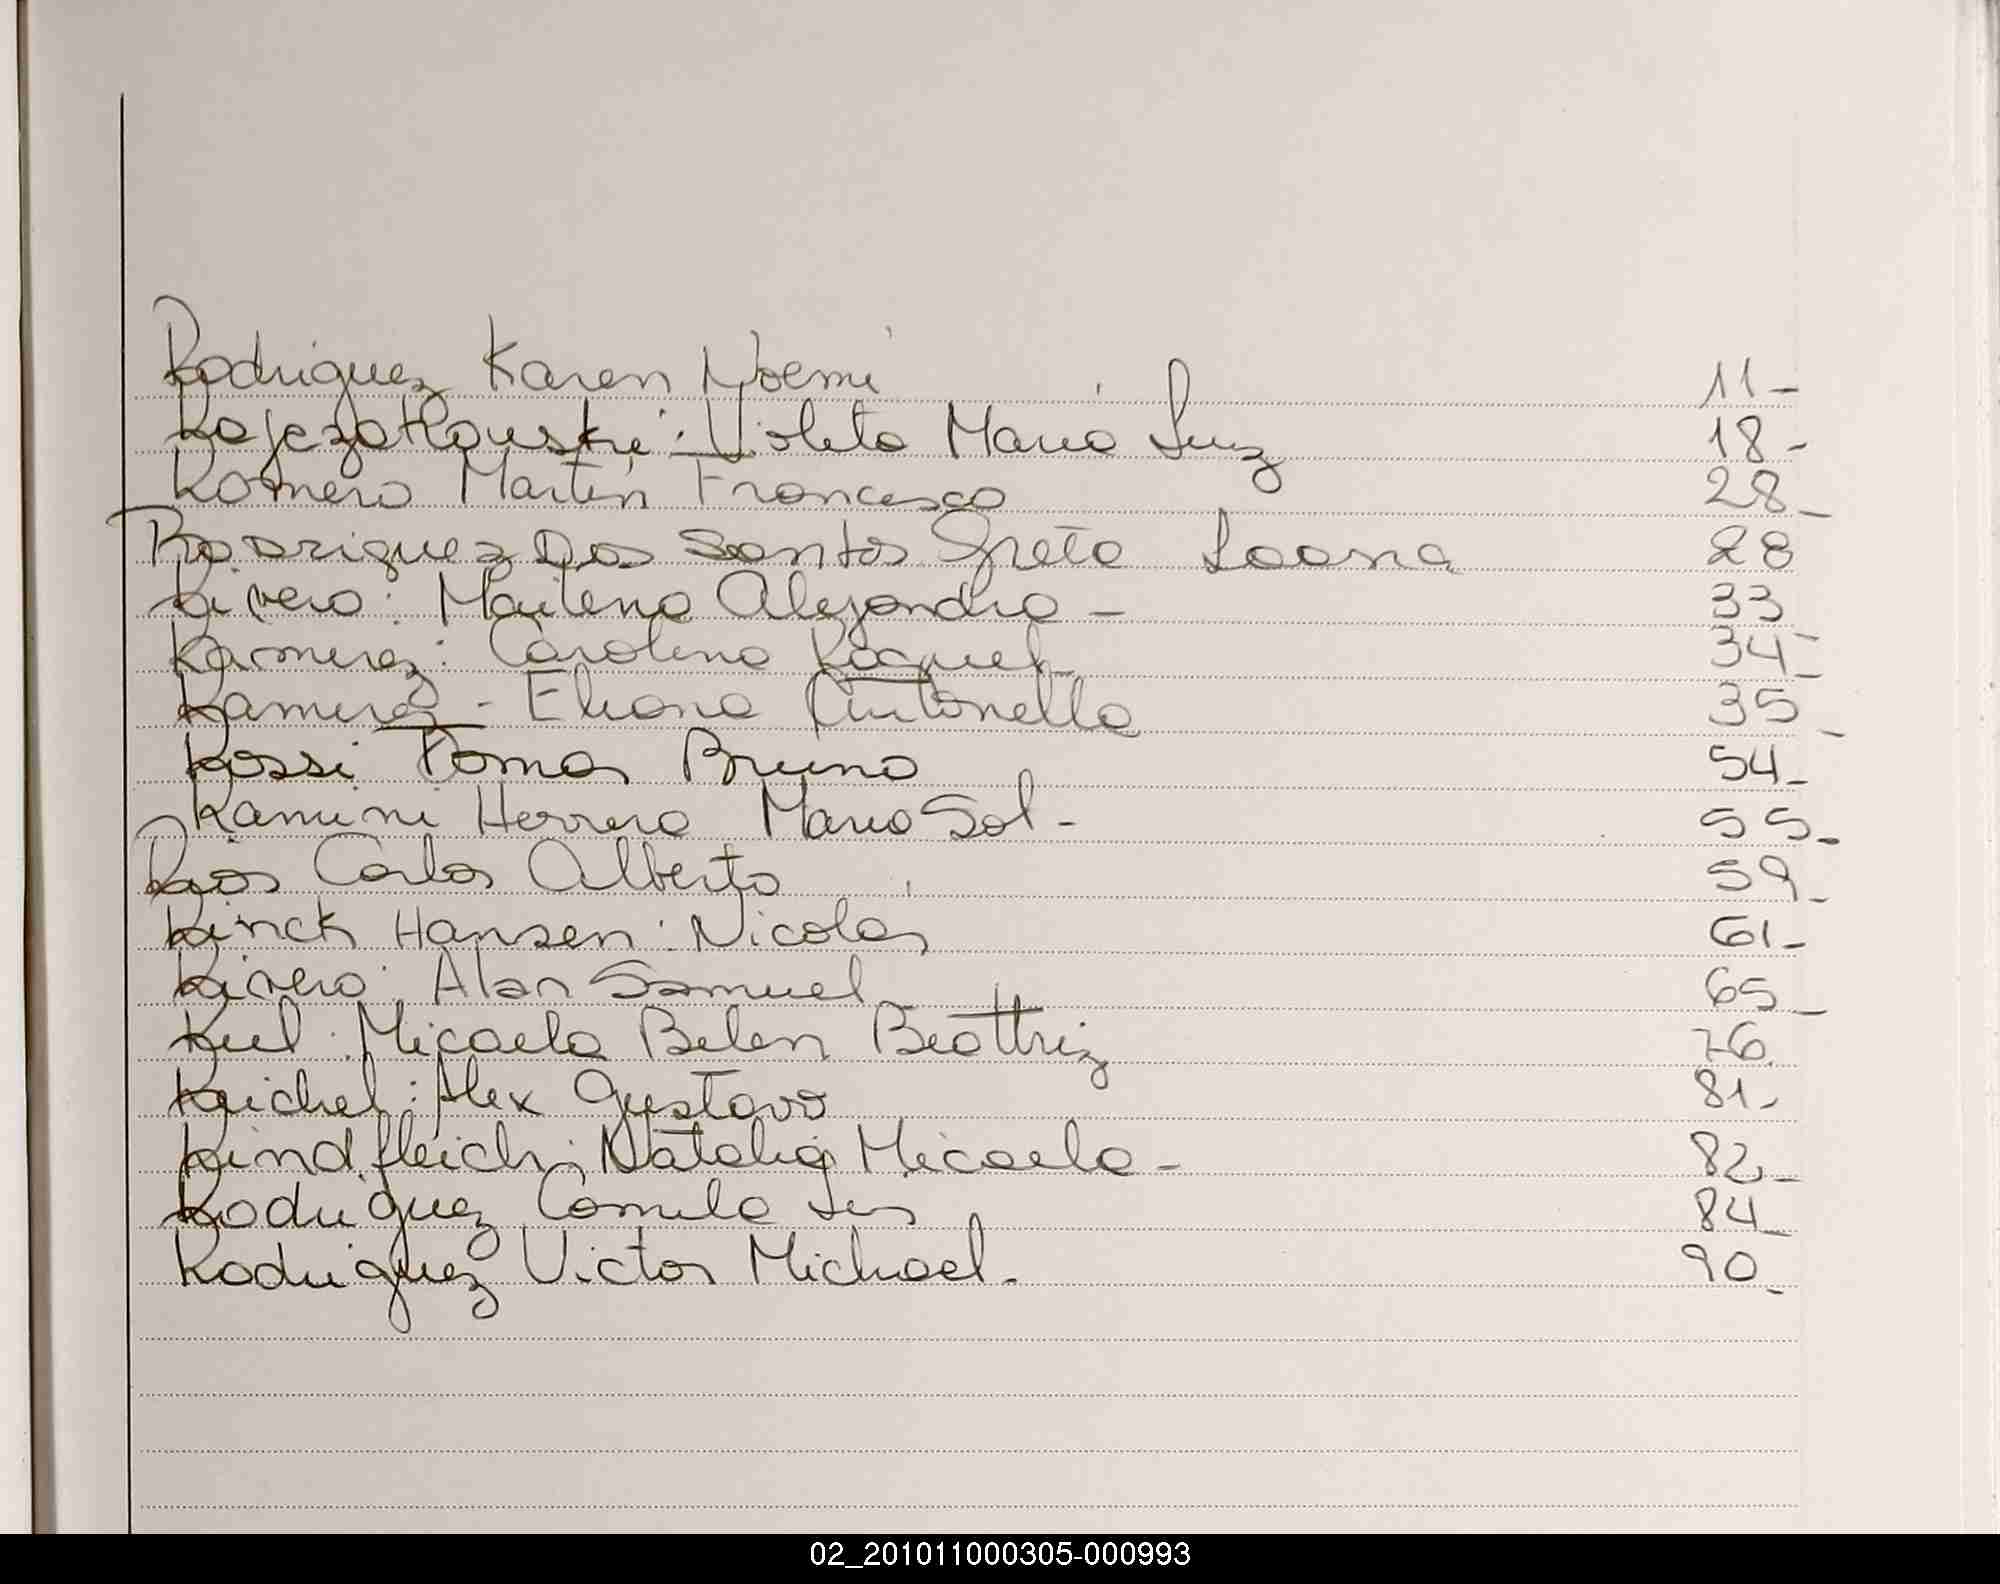 Rodriguez Karen Noemi 11-
Rajczatkouski: Violeta Maria Luz 18-
Romero Martin Francesco 28-
Rodriguez Dos Santos Greta Loana 28
Rivero: Mailena Alejandra - 33
Ramirez: Carolina Raquel 34-
Ramirez - Eliana Antonella 35-
Rossi Tomas Bruno 54-
Ramini Herrera Maria Sol - 55-
Rios Carlos Alberto 59-
Rinck Hansen: Nicolas 61-
Rivero: Alan Samuel 65-
Riel: Micaela Belen Beattriz 76.
Reichel: Alex Gustavo 81-
Rindfleich: Natalia Micaela - 82-
Rodriguez Camila Luz 84-
Rodriguez Victor Michael. 90-
02_201011000305-000993